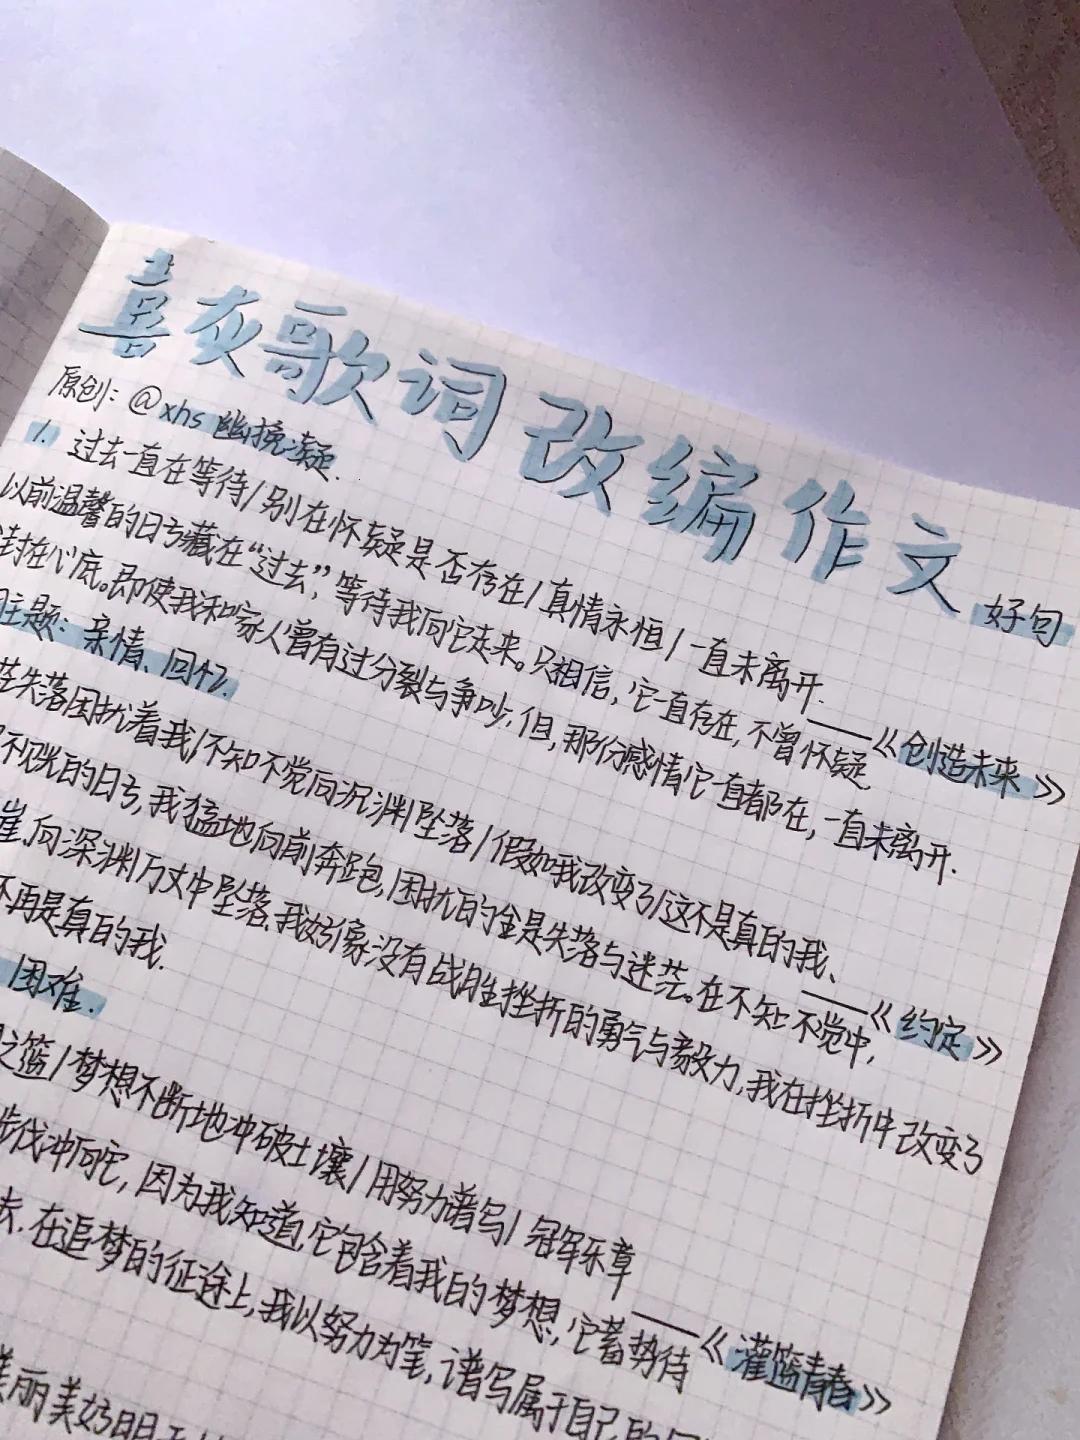 喜灰歌词改编作文好句
原创：@xhs 幽挽凝.
1. 过去一直在等待/别在怀疑是否存在/真情永恒/一直未离开.
——《创造未来》
以前温馨的日子藏在“过去”，等待我向它走来。只相信，它一直存在，不曾怀疑
封在心底。即使我和家人曾有过分裂与争吵.但，那份感情它一直都在，一直未离开.
主题：亲情、回忆.
失落困扰着我/不知不觉向沉渊坠落/假如我改变了/这不是真的我、
——《约定》
的日子，我猛地向前奔跑，困扰的全是失落与迷茫。在不知不觉中，
崖，向深渊万丈中坠落.我好像没有战胜挫折的勇气与毅力，我在挫折中改变了
不再是真的我.
困难.
之篮/梦想不断地冲破土壤/用努力谱写/冠军乐章
——《灌篮青春》
步伐冲向它，因为我知道，它包含着我的梦想，它蓄势待
去.在追梦的征途上，我以努力为笔，谱写属于自己的
美丽美好明天